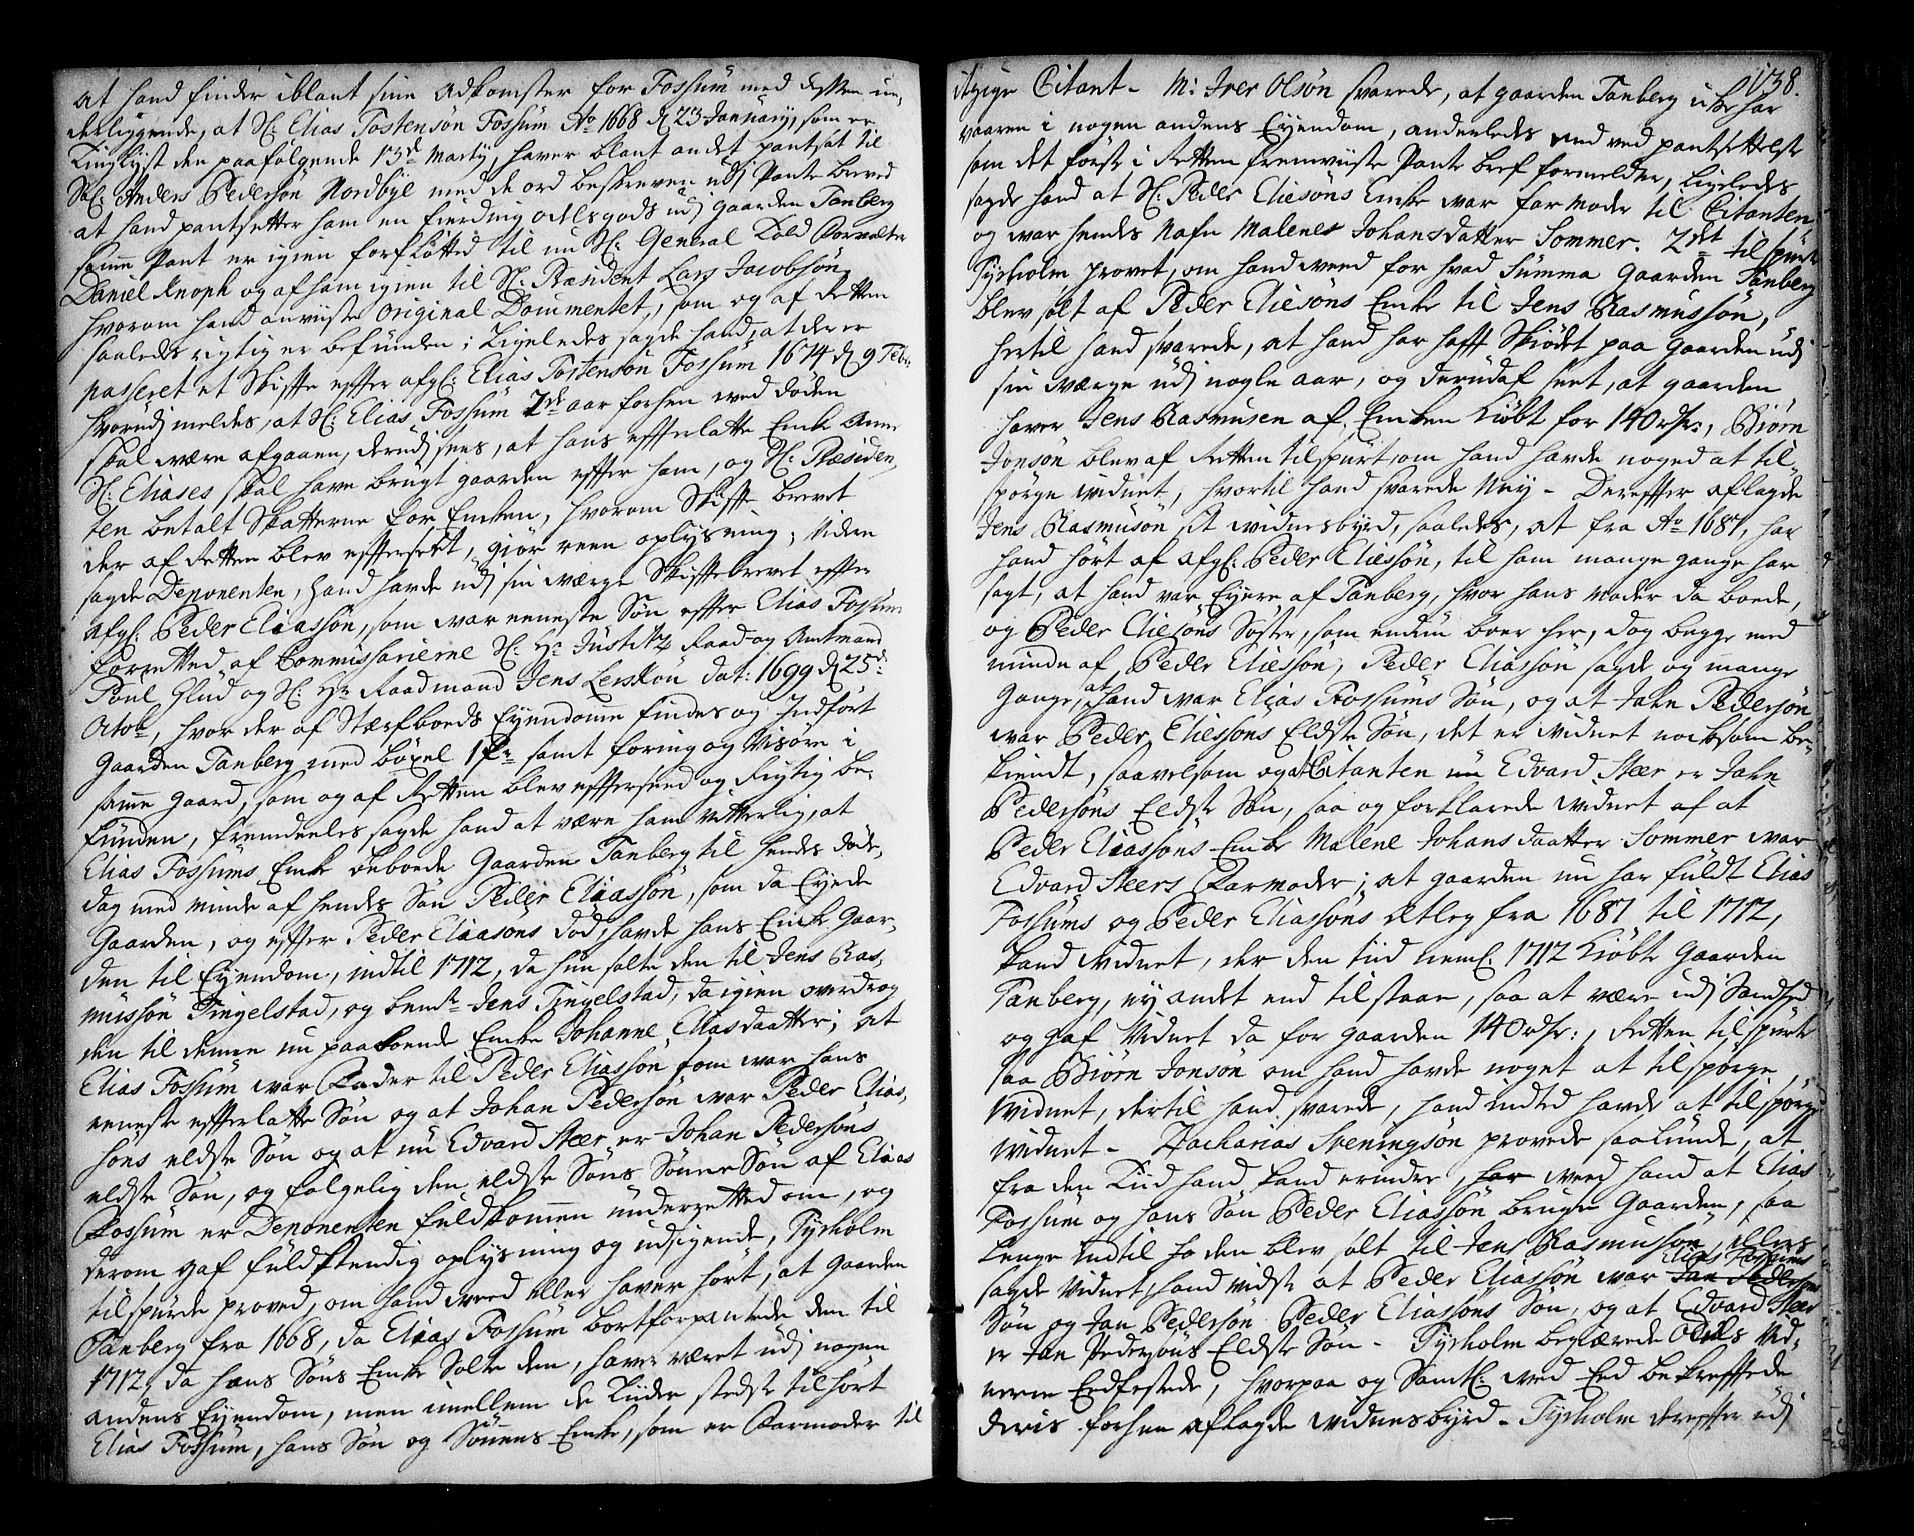 at hand finder iblant sine Adkomster for Fossum med Retten un,
derliggende, at Sl: Elias Tostensøn Fossum Ao 1668 d 23 January, som er
Tinglyst den paafølgende 13de Marty, haver blant andet pantsat til
Sal: Anders Pedersøn Nordbye med de ord beskreven udj Pante brevet
at hand pantsetter ham en fierding odelsgods udj gaarden Tanberg
samme Pant er igien forfløtted til nu Sl: General Told Forvalter
Daniel Knoph og af ham igien til Sl: Præsident Lars Jacobsøn,
hvorom hand anviiste original Documentet, som og af Retten
saaledes rigtig er befunden; Ligeledes sagde hand, at der er
passeret et Skifte effter afgl: Elias Tostensøn Fossum 1674 d 9 Febr:
hvorudj meldes, at Sl: Elias Fossum 2de aar forhen ved døden
skal være afgaaen, derudj sees, at hans effterlatte Enke Anne
Sl: Eliases skal have brugt gaarden effter ham, og Sl: Præsiden,
ten betalt Skatterne for Enken, hvorom Skifte brevet
der af Retten blev efftersett, giør reen oplysning; Siden
sagde Deponenten, hand havde udj sin værge Skiftebrevet effter
afgl: Peder Eliassøn, som var eneste Søn effter Elias Fossum
forretted af Commissarierne Sl: Hr Justitz Raad og Amtmand
Poul Glud og Sl: Hr Raadmand Jens Lerskou dat: 1699 d 25de
Octobr, hvor der af Stærfboeds Eyendomme findes og Indført
Gaarden Tanberg med bøxel 1 fr samt foring og Visøre i
samme gaard, som og af Retten blev effterseed og Rigtig be,
funden, fremdeeles sagde hand at være ham vitterlig, at
Elias Fossums Enke beboede Gaarden Tanberg til hendes døde,
dag med minde af hendes Søn Peder Eliassøn, som da Eyede
Gaarden, og effter Peder Eliasøns død, havde hans Enke Gaar,
den til Eyendom, indtil 1712, da hun solte den til Jens Ras,
mussøn Tingelstad, og bemte Jens Tingelstad, da igien overdrog
den til denne nu paaboende Enke Johanne Eliasdaatter; at
Elias Fossum var Fader til Peder Eliassøn som var hans
eneste effterlatte Søn og at Johan Pedersøn var Peder Elias,
søns eldste Søn og at nu Edvard Steer er Johan Pedersøns
eldste Søn, og følgelig den eldste Søns Sønne Søn af Elias
Fossum er Deponenten fuldkommen underretted om, og
derom gaf fuldstendig oplysning og udsigende, Tyrholm
tilspurde proved, om hand veed eller haver hørt, at gaarden
Tanberg fra 1668, da Elias Fossum bortforpantede den til
1712, da hans Søns Enke Solte den, haver været udj nogen
andens Eyendom, men imellem de Tiider stedse tilhørt
Elias Fossum, hans Søn og Sønens Enke, som er Farmoder til
138.
itzige Citant - Mr: Iver Olsøn svarede, at gaarden Tanberg icke har
vaaren i nogen andens Eyendom, anderledes end ved pantsettelse
som det første i Retten fremviiste Pante bref formelder, Ligeledes
sagde hand at Sl: Peder Eliesøns Enke var farmoder til Citanten,
og war hendes Nafn Malene Johansdatter Sommer. 2det tilspurte
Tyrholm provet, om hand veed for hvad Summa gaarden Tanberg
blev solt af Peder Eliesøns Enke til Jens Rasmussøn,
hertil hand svarede, at hand har hafft Skiødet paa gaarden udj
sin værge udj nogle aar, og derudaf seet, at gaarden
haver Jens Rasmusen af Enken Kiøbt for 140 rdr:, Biørn
Jonsøn blev af Retten tilspurt, om hand havde noged at til,
spørge vidnet, hvortil hand svarede Ney - Dereffter aflagde
Jens Rasmusøn sit vidnesbyrd, saaledes, at fra Ao 1687, har
hand hørt af afgl: Peder Eliessøn, til ham mange gange har
sagt, at hand var Eyere af Tanberg, hvor hans Moder da boede,
og Peder Eliesøns Søster, som endnu boer her, dog begge med
minde af Peder Eliessøn, Peder Eliassøn sagde og mange
Gange, at hand war Elias Fossums Søn, og at Jahn Pedersøn
war Peder Eliessøns Eldste Søn, det er vidnet nocksom be,
kiendt, saavelsom og at Citanten nu Edvard Steer er Jahn
Pedersøns Eldste Søn, saa og forklarede vidnet af at
Peder Eliassøns Enke Malene Johansdaatter Sommer war
Edvard Steers Farmoder; at gaarden nu har fuldt Elias
Fossums og Peder Eliassøns Etleg fra 1687 til 1712,
kand vidnet, der den tiid neml: 1712 Kiøbte Gaarden
Tanberg, ey andet end tilstaae, saa at være udj Sandhed
og gaf Vidnet da for gaarden 140 rdr:, Retten tilspurte
saa Biørn Jonsøn om hand havde noget at tilspørge
Vidnet, dertil hand svarede, hand inted havde at tilspørge
vidnet - Zacharias Sveningsøn provede saalunde, at
fra den Tiid hand kand erindre, har veed hand at Elias
Fossum og hans Søn Peder Eliassøn brugte Gaarden, saa
lenge indtil ho den blev solt til Jens Rasmussøn, ellers
sagde Vidnet, hand vidste at Peder Eliassøn war Elias Fossums Jan Pedersøns
Søn og Jan Pedersøn Peder Eliassøns Søn, og at Edvard Steer
er Jan Pedersøns Eldste Søn - Tyrholm begiærede Vid,
nerne Eedfestede, hvorpaa og Samtl: ved Eed bekrefftede
deris forhen aflagde vidnesbyrd - Tyrholm dereffter udj